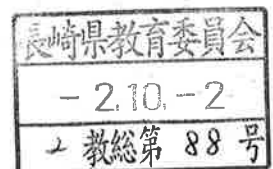 長崎県教育委員会
-2.10.-2
2教総第 88 号